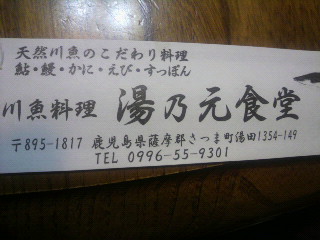 天然川魚のこだわり料理
鮎・鰻・かに・えび・すっぽん
川魚料理 湯乃元食堂
〒895-1817 鹿児島県薩摩郡さつま町湯田1354-149
TEL 0996-55-9301